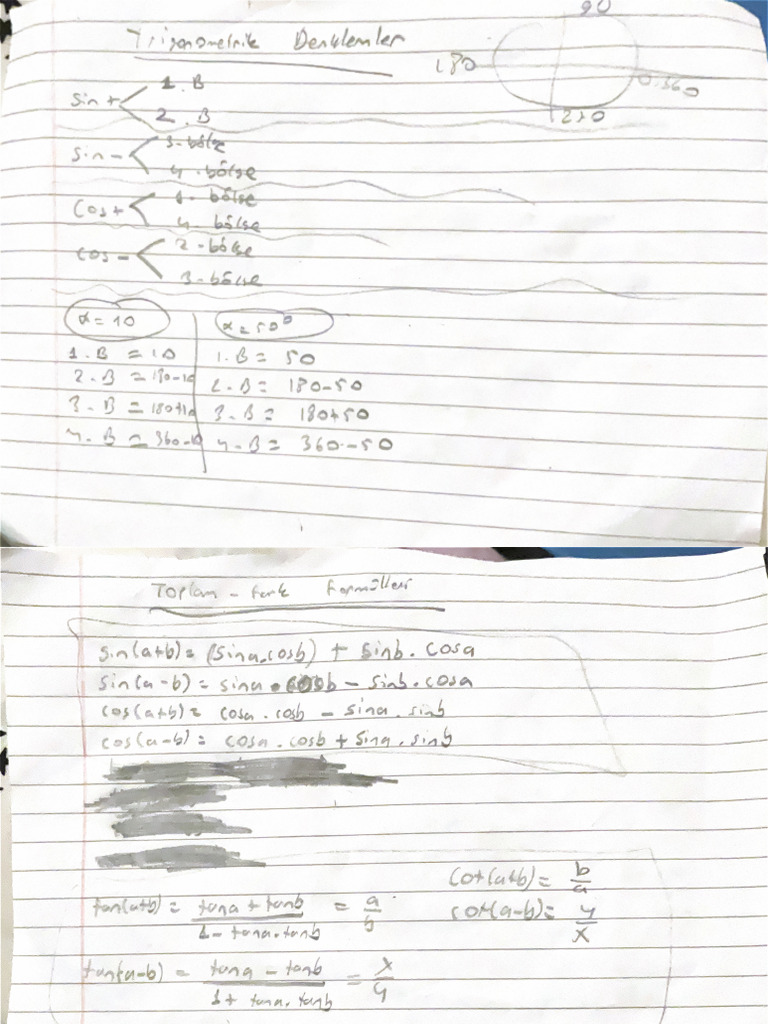 Trigonometrik Denklemler
90
180
0-360
270
sin+ 1. B
2. B
sin- 3-bölge
4. bölge
cos+ 1. bölge
4. bölge
cos- 2-bölge
3-bölge
α = 10
1. B = 10
2. B = 180-10
3. B = 180+10
4. B = 360-10
α = 50°
1. B = 50
2. B = 180-50
3. B = 180+50
4. B = 360-50
Toplam - fark formülleri
sin(a+b) = (sina.cosb) + sinb. cosa
sin(a-b) = sina . cosb - sinb.cosa
cos(a+b) = cosa . cosb - sina. sinb
cos(a-b) = cosa . cosb + sina. sinb
tan(a+b) = tana + tanb / 1- tana.tanb = a/b
cot(a+b) = b/a
cot(a-b) = y/x
tan(a-b) = tana - tanb / 1+ tana. tanb = x/y